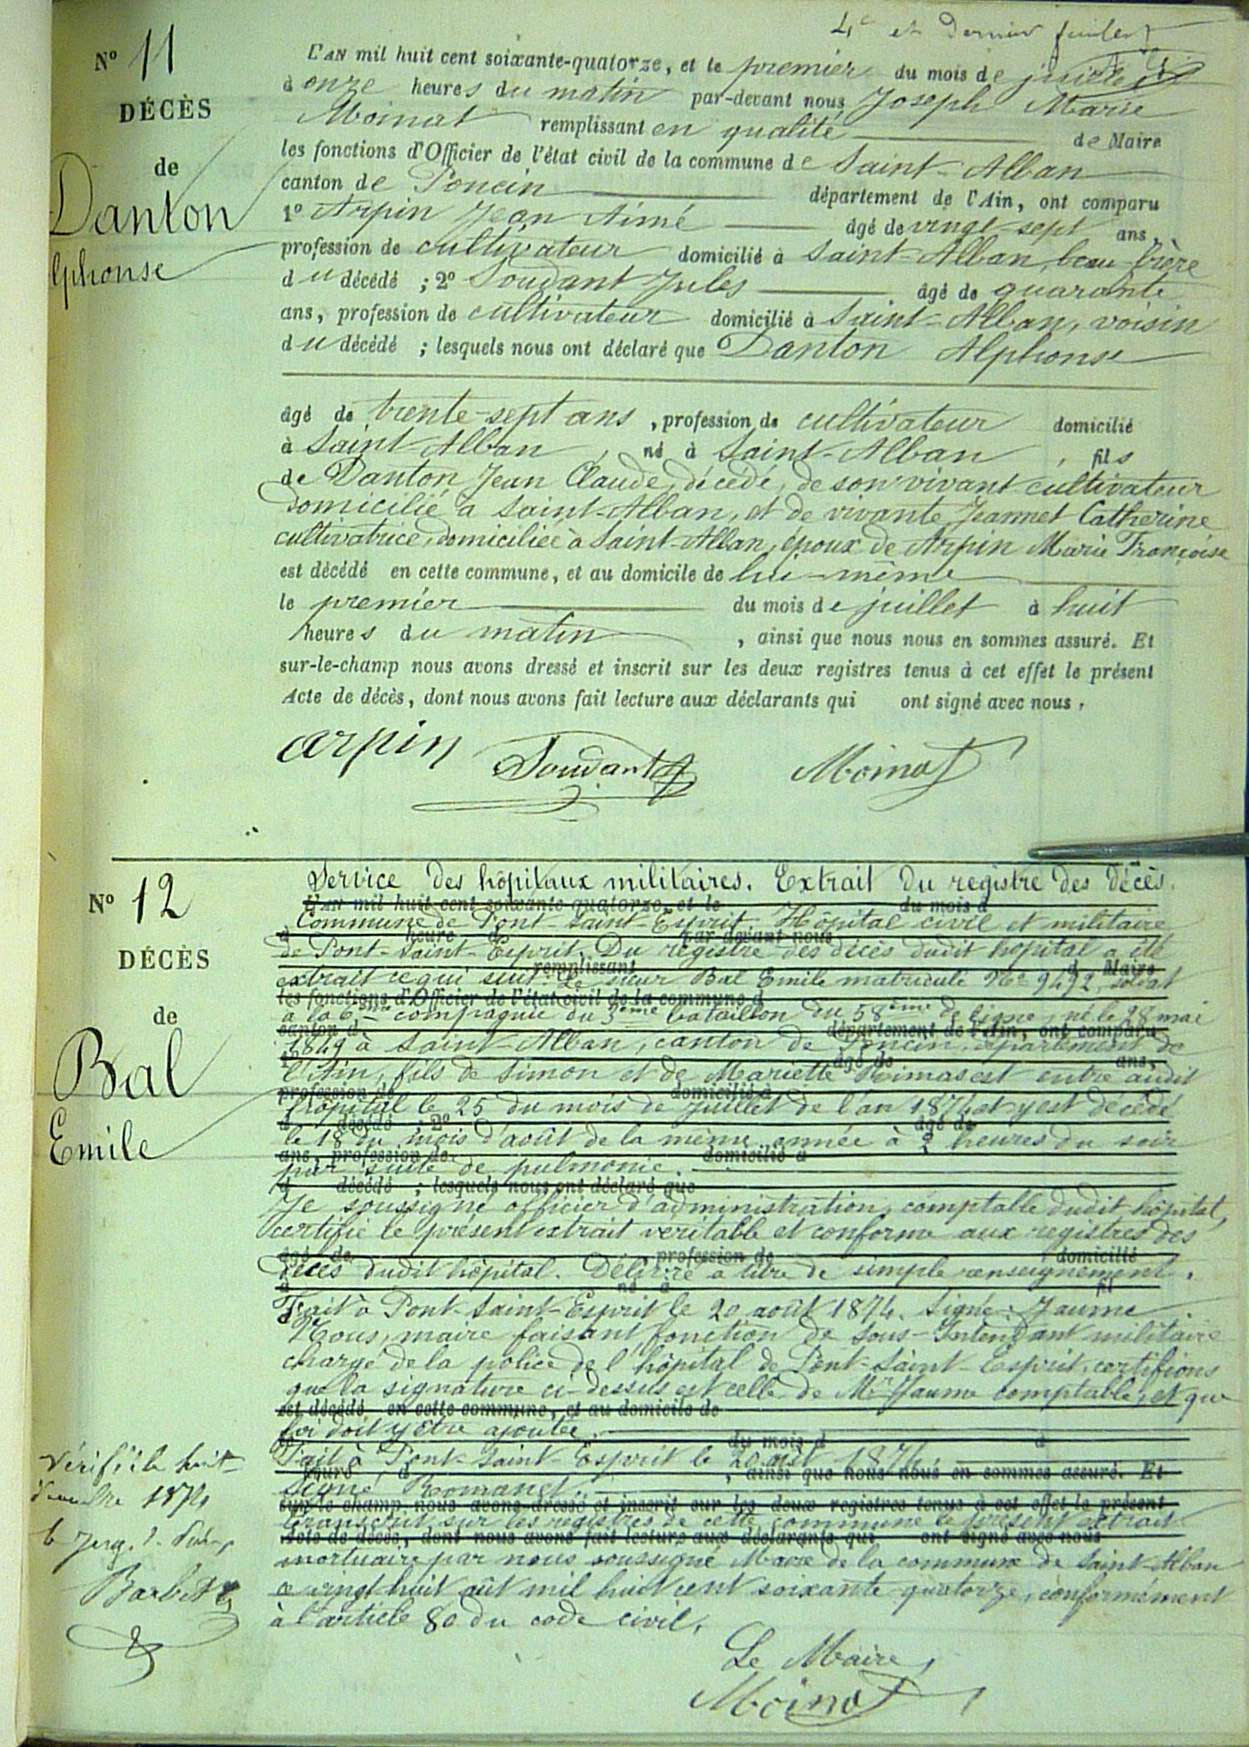 4e et dernier feuillet
N° 11
DÉCÈS
de
Danton
lphonse
L'AN mil huit cent soixante-quatorze, et le premier du mois de juillet
à onze heures du matin par-devant nous Joseph Marie
Moinat remplissant en qualité de Maire
les fonctions d'Officier de l'état civil de la commune de Saint-Alban
canton de Poncin département de l'Ain, ont comparu
1° Arpin Jean Aimé âgé de vingt-sept ans,
profession de cultivateur domicilié à Saint-Alban, beau-frère
du décédé ; 2° Soudant Jules âgé de quarante
ans, profession de cultivateur domicilié à Saint-Alban, voisin
du décédé ; lesquels nous ont déclaré que Danton Alphonse
âgé de trente-sept ans, profession de cultivateur domicilié
à Saint-Alban, né à Saint-Alban, fils
de Danton Jean Claude, décédé, de son vivant cultivateur
domicilié à Saint-Alban, et de vivante Jeannet Catherine
cultivatrice, domiciliée à Saint-Alban, époux de Arpin Marie Françoise
est décédé en cette commune, et au domicile de lui-même
le premier du mois de juillet à huit
heures du matin, ainsi que nous nous en sommes assuré. Et
sur-le-champ nous avons dressé et inscrit sur les deux registres tenus à cet effet le présent
Acte de décès, dont nous avons fait lecture aux déclarants qui ont signé avec nous.
arpin Soudant Moinat
N° 12
DÉCÈS
de
Bal
Emile
Service des hôpitaux militaires. Extrait du registre des décès.
Commune de Pont-Saint-Esprit. Hôpital civil et militaire
de Pont-Saint-Esprit. Du registre des décès dudit hôpital a été
extrait ce qui suit: Le sieur Bal Emile matriculé N° 9492, soldat
à la 6ème compagnie du 3ème bataillon du 58ème de ligne, né le 28 mai
1849 à Saint-Alban, canton de Poncin, département de
l'Ain, fils de Simon et de Mariette est entré audit
hôpital le 25 du mois de Juillet de l'an 1874 et y est décédé
le 18 du mois d'août de la même année à 2 heures du soir
par suite de pulmonie.
Je soussigné officier d'administration, comptable dudit hôpital,
certifie le présent extrait véritable et conforme aux registres des
décès dudit hôpital. Délivré à titre de simple renseignement.
Fait à Pont-Saint-Esprit le 20 août 1874. Signé: Jaume.
Nous, maire faisant fonction de Sous-Intendant militaire
chargé de la police de l'hôpital de Pont-Saint-Esprit, certifions
que la signature ci-dessus est celle de Mr Jaume comptable, et que
foi doit y être ajoutée.
Fait à Pont-Saint-Esprit le 20 août 1874
Signé Romanet.
Transcrit sur les registres de cette commune le présent extrait
mortuaire par nous soussigné Maire de la commune de Saint-Alban
ce vingt huit août mil huit cent soixante-quatorze, conformément
à l'article 80 du code civil.
Le Maire,
Moinat
Vérifié le huit
1874
Barbet